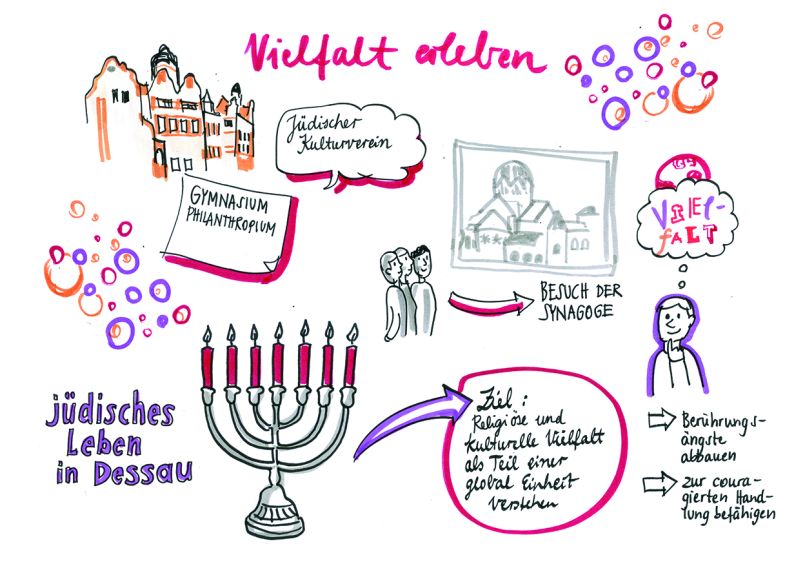 Vielfalt erleben
Jüdischer
Kulturverein
GYMNASIUM
PHILANTHROPIUM
VIEL-
fALT
BESUCH DER
SYNAGOGE
jüdisches
Leben
in Dessau
Ziel:
Religiöse und
kulturelle Vielfalt
als Teil einer
global Einheit
verstehen
Berührungs-
ängste
abbauen
zur coura-
gierten Hand-
lung befähigen